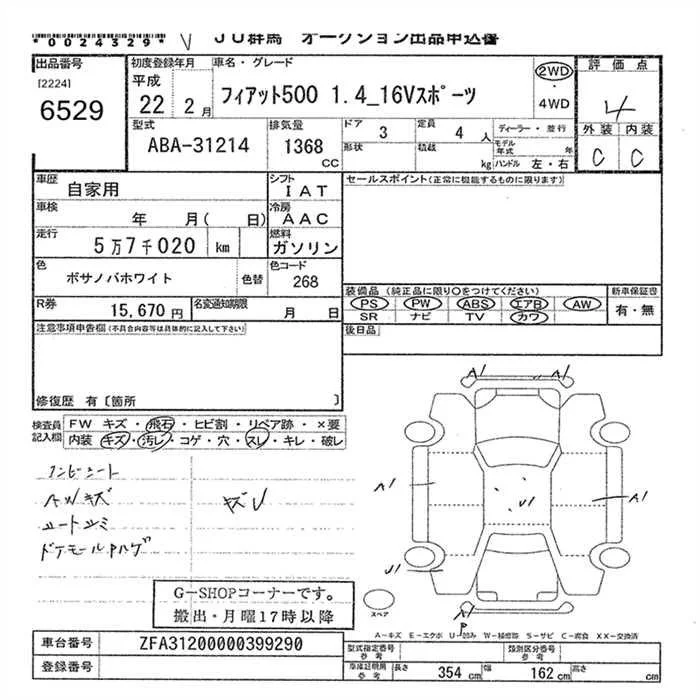 *0024329* V JU群馬 オークション出品申込書
出品番号 初度登録年月 車名・グレード 評価点
[2224] 平成 2WD
6529 22 2月 フィアット500 1.4_16Vスポーツ 4WD 4
型式 排気量 ドア 3 定員 4人 ディーラー・並行 外装 内装
ABA-31214 1368 CC 形状 積載 kg モデル年式 年 ハンドル 左・右 C C
車歴 自家用 シフト IAT セールスポイント(正常に機能するものに限ります)
車検 年 月( 日) 冷房 AAC
走行 5万7千020 km 燃料 ガソリン
色 ボサノバホワイト 色替 色コード 268
装備品 (純正品に限り○をつけてください) 新車保証書
R券 15,670円 名変通知期限 月 日 PS PW ABS エアB AW 有・無
SR ナビ TV カワ
注意事項申告欄(不具合内容等は具体的に記入して下さい) 後日品
修復歴 有〔箇所 〕
検査員記入欄 FW キズ・飛石・ヒビ割・リペア跡・×要
内装 キズ・汚レ・コゲ・穴・スレ・キレ・破レ
A1 A1
A/Wキズ キズU
A1 U1 A1
U1
G-SHOPコーナーです。
搬出・月曜17時以降
スペア A1
P
A-キズ E-エクボ U-凹み W-補修跡 S-サビ C-腐食 XX-交換済
車台番号 ZFA31200000399290 型式指定番号 参考 類別区分番号 参考
登録番号 車庫証明用 参考 長さ 354 cm 幅 162 cm 高さ cm